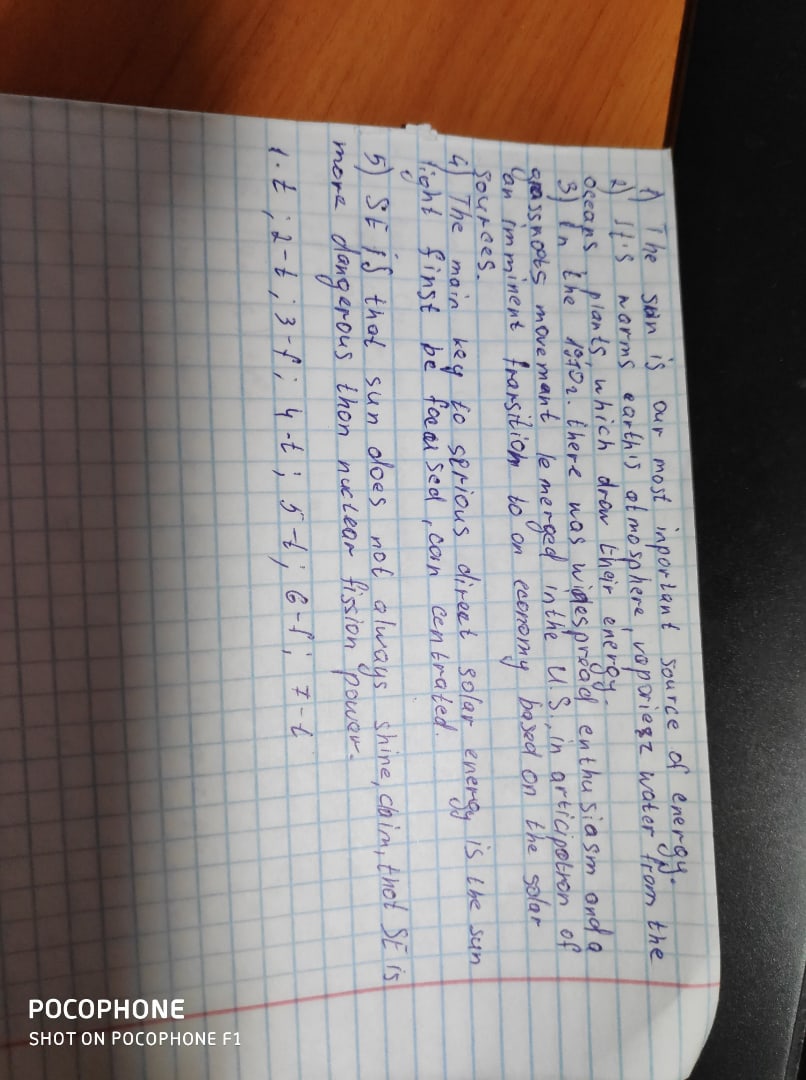 1) The sun is our most inportant source of energy.
2) It is warms earth's atmosphere, vaporiesz water from the
oceans, plants, which draw their energy.
3) In the 1970г. there was widespread enthusiasm and a
grassroots movement lemerged in the U.S, in articipotion of
an imminent transition to on economy based on the solar
sources.
4) The main key to serious direct solar energy is the sun
light first be focused, can centrated.
5) SE is that sun does not always shine, claim, that SE is
more dangerous than nuclear fission power.
1. t; 2-t; 3-f; 4-t; 5-t; 6-f; 7-t
POCOPHONE
SHOT ON POCOPHONE F1